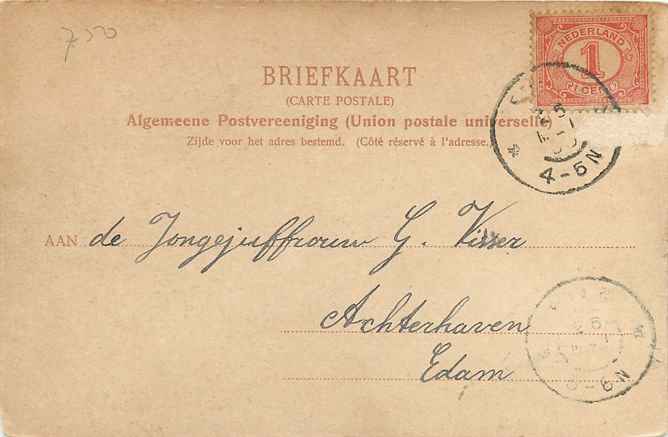 750
NEDERLAND
1
1 CENT
BRIEFKAART
(CARTE POSTALE)
Algemeene Postvereeniging (Union postale universelle
Zijde voor het adres bestemd. (Côté réservé à l'adresse.
4-5N
AAN de Jongejuffrouw G. Visser
Achterhaven
Edam